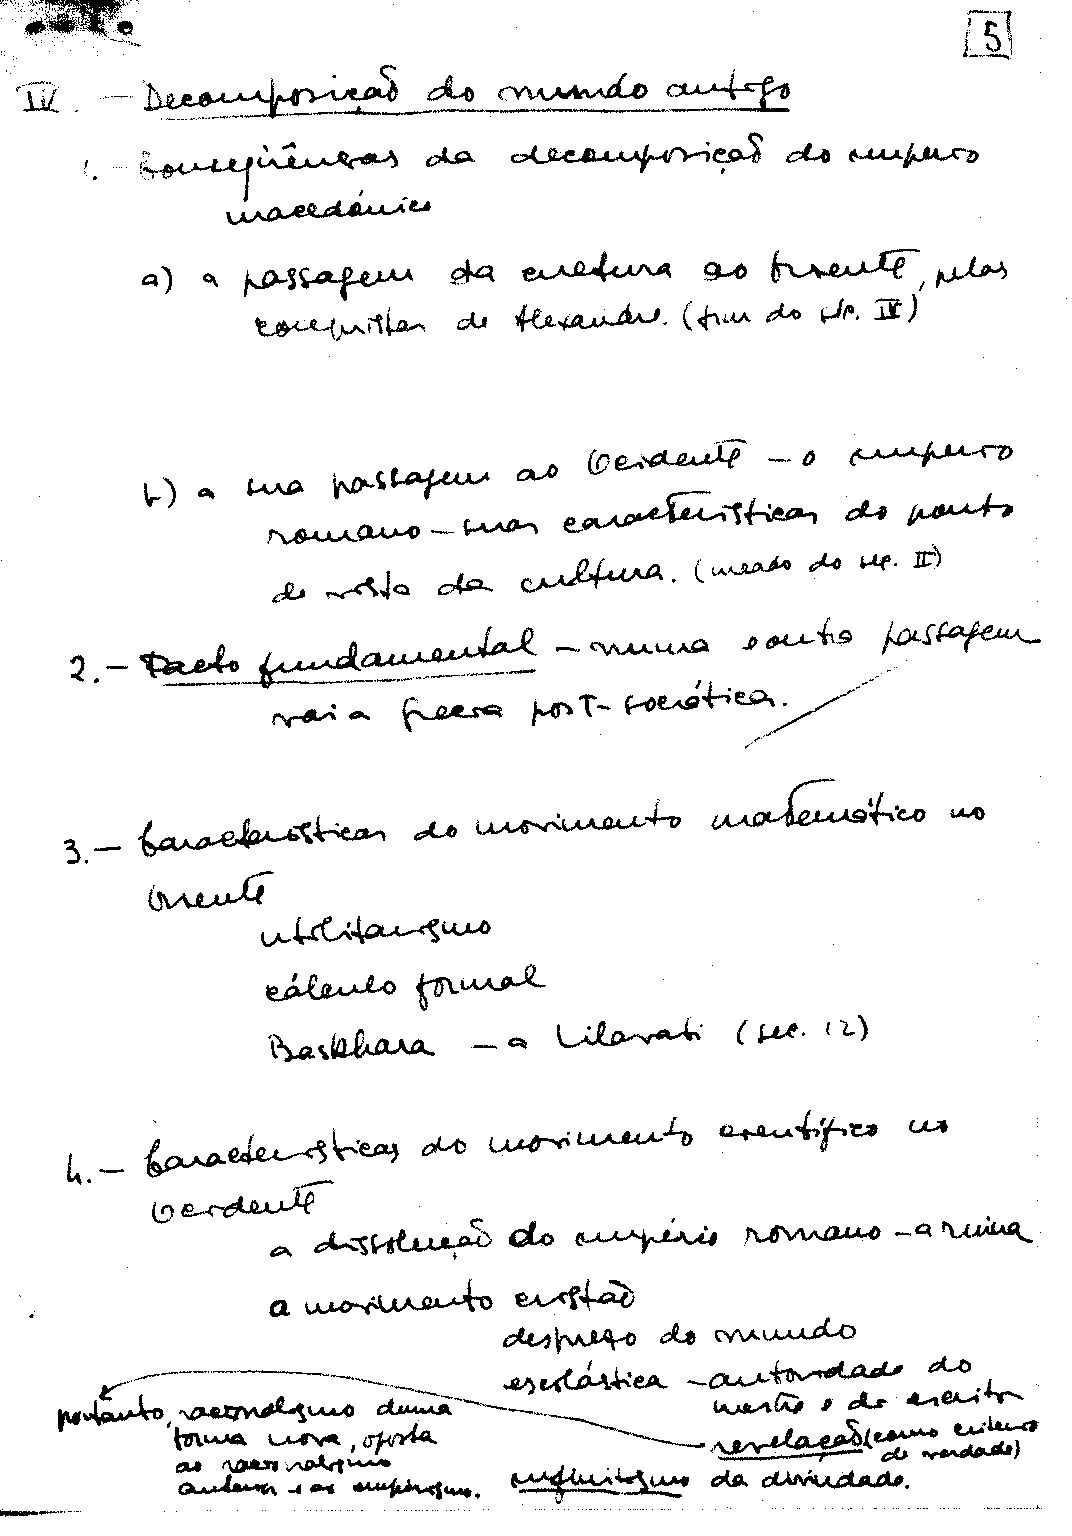 5
IV. - Decomposição do mundo antigo
1. - Conseqüências da decomposição do império
macedónico
a) a passagem da cultura ao Oriente, pelas
conquistas de Alexandre. (fim do séc. IV)
b) a sua passagem ao Ocidente - o império
romano - suas características do ponto
de vista da cultura. (meado do séc. II)
2. - Facto fundamental - numa e outra passagem
vai a Grécia post-socrática.
3. - Características do movimento matemático no
Oriente
utilitarismo
cálculo formal
Baskhara - a Lilavati (sec. 12)
4. - Características do movimento científico no
Ocidente
a dissolução do império romano - a ruína
a movimento cristão
desprezo do mundo
escolástica - autoridade do
mestre e do escritor
revelação (como critério
de verdade)
infinitismo da divindade.
portanto, racionalismo duma
forma nova, oposta
ao racionalismo
anterior e ao empirismo.